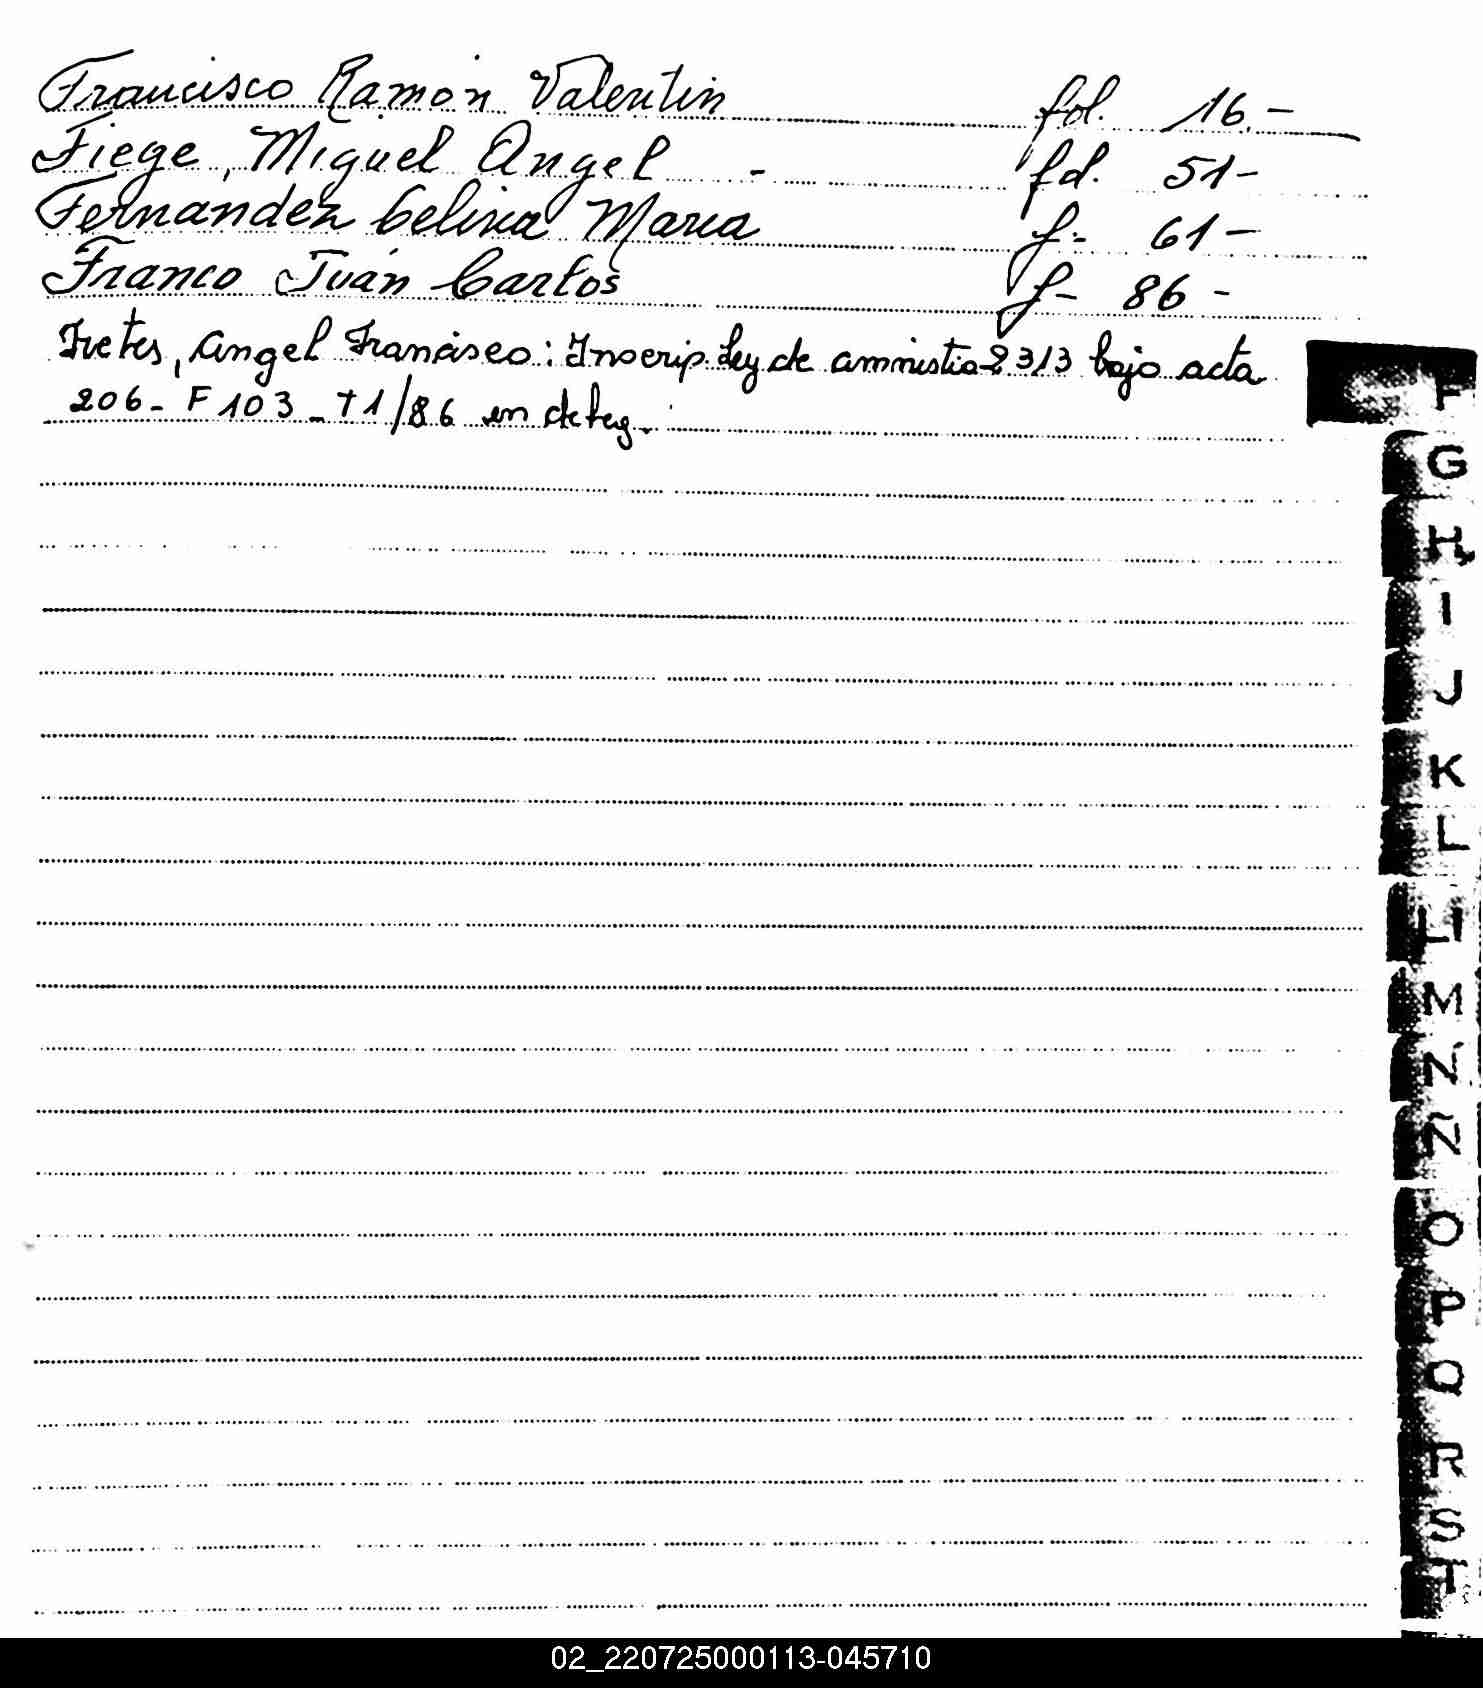 Francisco Ramón Valentin fol. 16.-
Fiege, Miguel Angel - fol. 51-
Fernandez Celina Maria f- 61-
Franco Juan Carlos f- 86-
Fretes, Angel Francisco: Inscrip. Ley de amnistia 2313 bajo acta
206- F 103 - T1/86 en deleg.
F
G
H
I
J
K
L
LL
M
N
Ñ
O
P
Q
R
S
T
02_220725000113-045710